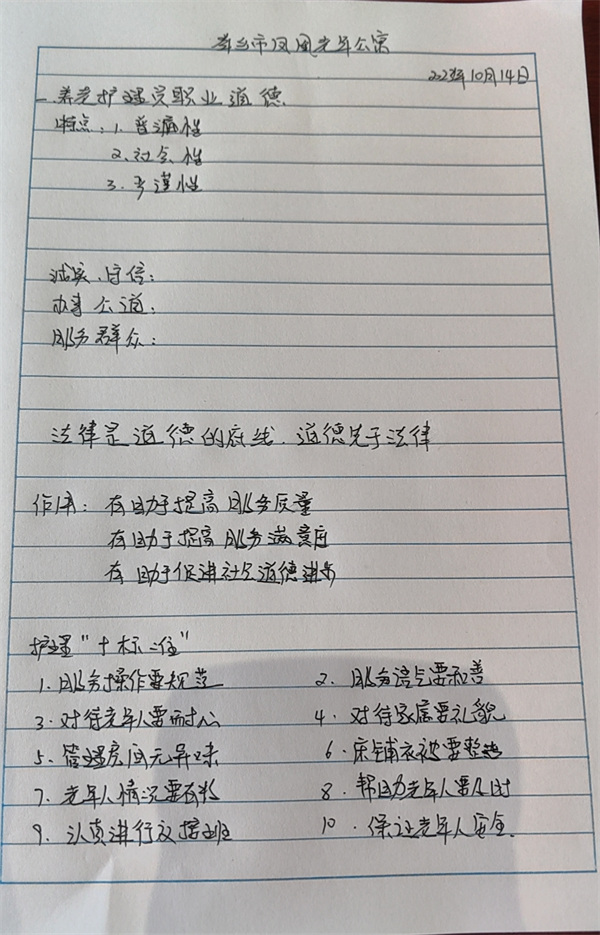 萍乡市凤凰老年公寓
2023年10月14日
一.养老护理员职业道德
特点:1.普遍性
2.社会性
3.严谨性
诚实.守信:
办事公道:
服务群众:
法律是道德的底线.道德先于法律
作用:有助于提高服务质量
有助于提高服务满意度
有助于促进社会道德进步
护理"十标准"
1.服务操作要规范 2.服务语气要和善
3.对待老年人要耐心 4.对待家属要礼貌
5.管理房间无异味 6.床铺衣被要整
7.老年人情况要 8.帮助老年人要及时
9.认真进行交接班 10.保证老年人安全.